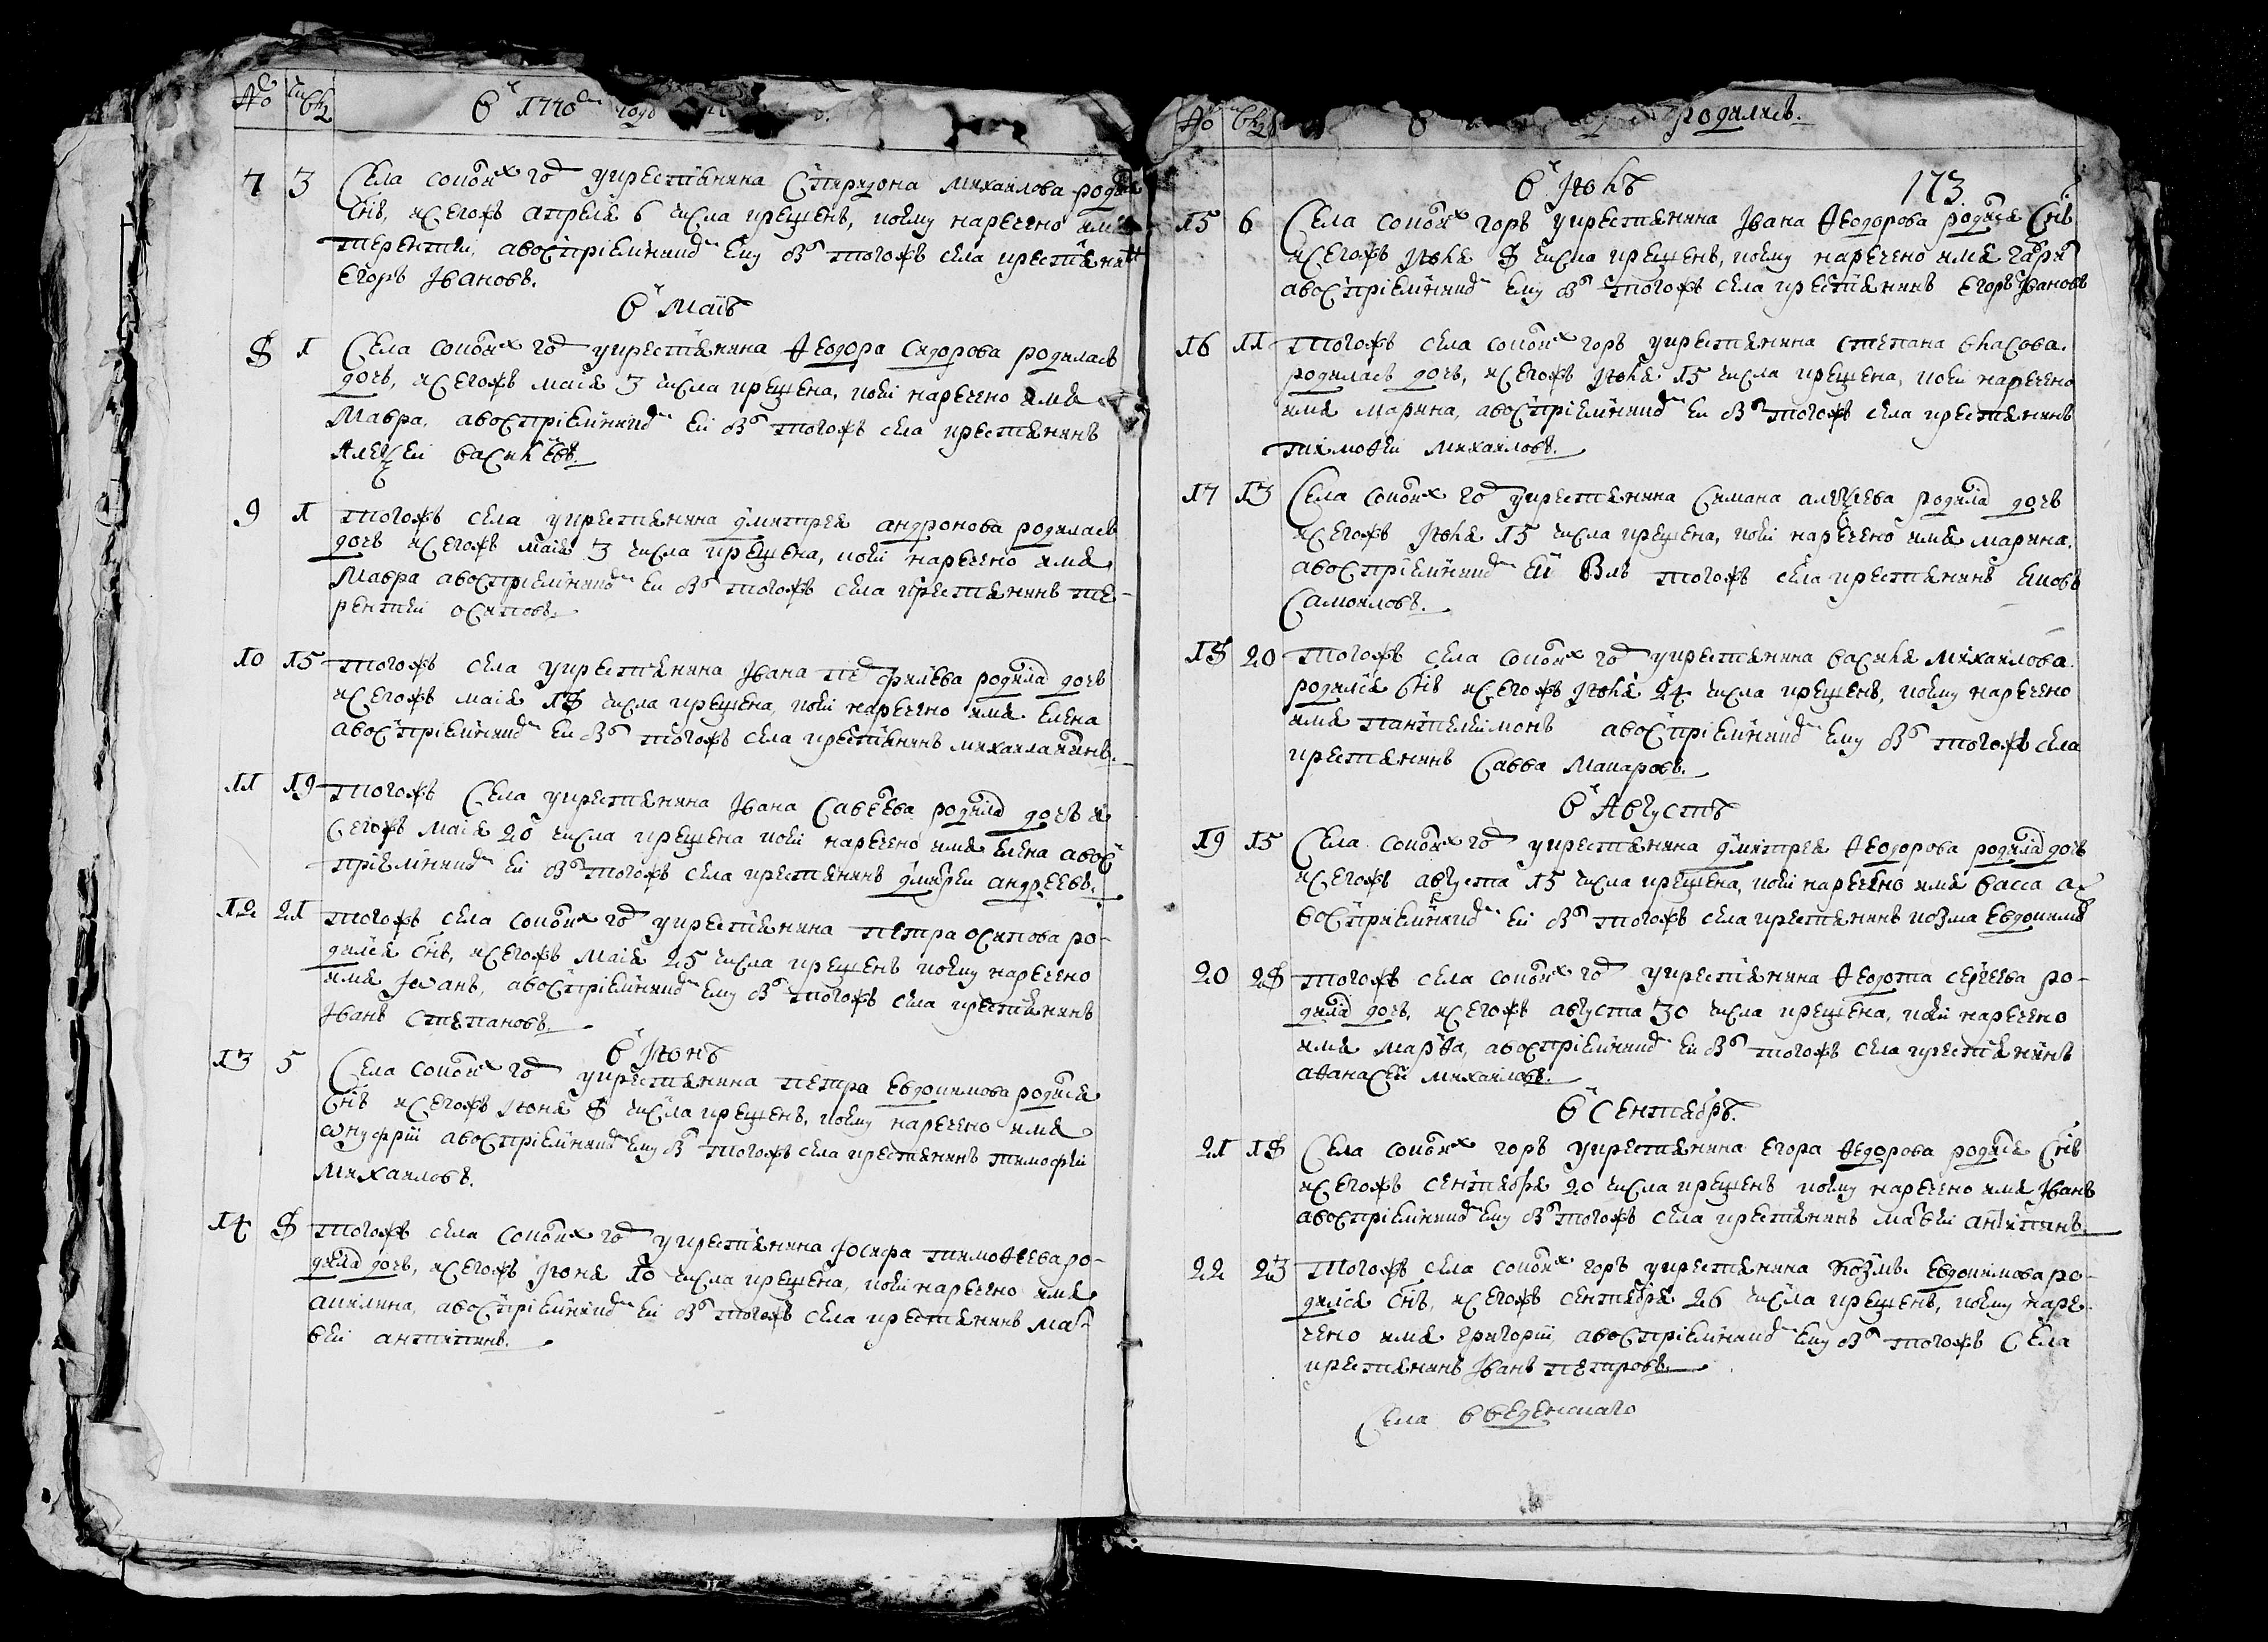 № числа
В 1770м годѣ
7 3 Села соколих гор у крестьянина Спиридона Михайлова родися
снъ, и сегожъ апреля 6 числа крещенъ, коему наречено имя
терентии, авосприемником ему былъ тогожъ села крестьянин
Егоръ Ивановъ.
В Маїѣ
8 1 Села соколих гор у крестьянина Ѳеодора Сидорова родилась
дочь, и сегожъ маїя 3 числа крещена, коеи наречено имя
Мавра, авосприемником еи былъ тогожъ села крестьянинъ
Алеѯеи Васильевъ.
9 1 тогожъ села у крестьянина дмитрея андронова родилась
дочь и сегожъ маїя 3 числа крещена, коеи наречено имя
Мавра авосприемником еи былъ тогожъ села крестьянинъ те-
рентеи осиповъ.
10 15 тогожъ села у крестьянина Ивана родила дочь
и сегожъ маїя 18 числа крещена, коеи наречено имя Елена
авосприемником еи былъ тогожъ села крестьянинъ михаила
11 19 тогожъ Села у крестьянина Ивана Савѣева родила дочь и
сегожъ маїя 20 числа крещена коеи наречено имя Елена авос
приемником еи былъ тогожъ села крестьянинъ дмитреи андреевъ.
12 21 тогожъ села соколих гор у крестьянина петра осипова ро-
дился снъ, и сегожъ маїя 25 числа крещенъ коему наречено
имя Іѡанъ, авосприемником ему былъ тогожъ села крестьянинъ
Иванъ степановъ.
В Іюнѣ
13 5 Села соколих гор у крестьянина петра Евдокимова родися
снъ и сегожъ Іюня 8 числа крещенъ, коему наречено имя
ѡнуфрїи авосприемником ему былъ тогожъ села крестьянинъ тимофеи
Михаиловъ.
14 8 тогожъ села соколих гор у крестьянина Іосифа тимоѳеева ро-
дила дочь, и сегожъ Іюня 10 числа крещена, коеи наречено имя
акилина, авосприемником еи былъ тогожъ села крестьянинъ мат-
веи антипинъ.
№ числа родились.
В Іюлѣ 173.
15 6 Села соколих горъ у крестьянина Ивана Ѳеодорова родися Снъ
и сегожъ Іюля 8 числа крещенъ, коему наречено имя
авосприемником ему былъ тогожъ села крестьянинъ Егоръ Ивановъ
16 11 тогожъ села соколих горъ у крестьянина степана власова.
родилась дочь, и сегожъ Іюля 15 числа крещена, коеи наречено
имя марина, авосприемником еи былъ тогожъ села крестьянинъ
тимоѳеи михаиловъ.
17 13 Села соколих гор у крестьянина Симана алеѯеева родила дочь
и сегожъ Іюля 15 числа крещена, коеи наречено имя марина.
авосприемником еи былъ тогожъ села крестьянинъ яковъ
Самоиловъ.
18 20 тогожъ села соколих гор у крестьянина василья михаилова.
родился снъ и сегожъ Іюля 24 числа крещенъ, коему наречено
имя пантелеимонъ авосприемником ему былъ тогожъ села
крестьянинъ Савва Макаровъ.
В Августѣ
19 15 Села соколих гор у крестьянина дмитрея Ѳеодорова родила дочь
и сегожъ августа 15 числа крещена, коеи наречено имя васса а
восприемником еи былъ тогожъ села крестьянинъ козма Евдокимов
20 28 тогожъ села соколих гор у крестьянина Ѳеодота сергеева ро-
дила дочь, и сегожъ августа 30 числа крещена, коеи наречено
имя марѳа, авосприемником еи былъ тогожъ села крестьянинъ
аѳанасеи михаиловъ.
В Сентябрѣ.
21 18 Села соколих горъ у крестьянина Егора Ѳедорова родися Снъ
и сегожъ сентября 20 числа крещенъ коему наречено имя Иванъ
авосприемником ему былъ тогожъ села крестьянинъ матвеи антипинъ
22 23 тогожъ села соколих горъ у крестьянина козмы Евдокимова ро-
дился снъ, и сегожъ сентября 26 числа крещенъ, коему наре-
чено имя григорїи, авосприемником ему былъ тогожъ Села
крестьянинъ Иванъ петровъ.
Села введенскаго